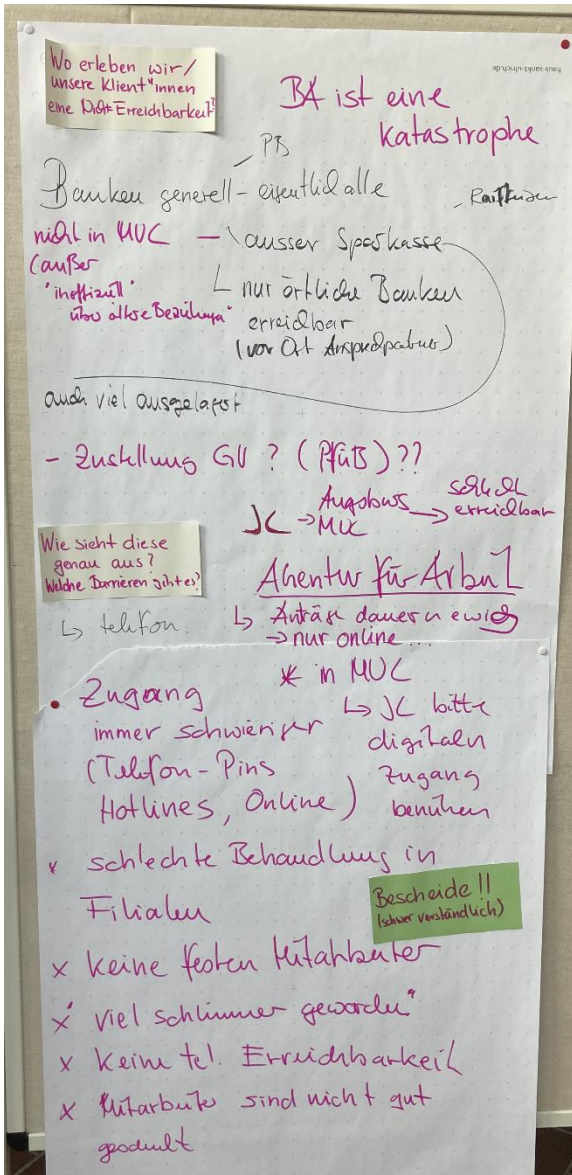 Wo erleben wir/
unsere Klient*innen
eine Nicht-Erreichbarkeit?
haus-sankt-ulrich.de
BA ist eine
katastrophe
PB
Banken generell - eigentlich alle
Raiffeisen
nicht in MUC — ausser Sparkasse
(außer
"inoffiziell"
über ältere Beziehungen"
nur örtliche Banken
erreichbar
(vor Ort Ansprechpartner)
auch viel ausgelagert
- Zustellung GV ? (PfüB) ??
JC → Augsburg
MUC → schlecht
erreichbar
Wie sieht diese
genau aus?
Welche Barrieren gibt es?
↳ telefon.
Agentur für Arbeit
↳ Anträge dauern ewig
→ nur online ...
* in MUC
↳ JC bitte
digitalen
Zugang
benützen
• Zugang
immer schwieriger
(Telefon-Pins
Hotlines, Online)
* schlechte Behandlung in
Filialen
Bescheide !!
(schwer verständlich)
x keine festen Mitarbeiter
x "viel schlimmer geworden"
x keine tel. Erreichbarkeit
x Mitarbeiter sind nicht gut
geschult